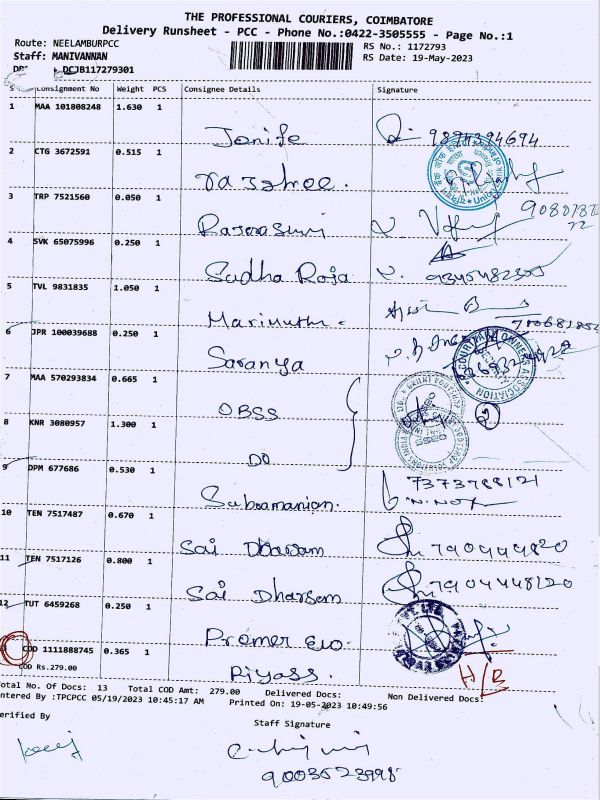 THE PROFESSIONAL COURIERS, COIMBATORE
Delivery Runsheet - PCC - Phone No.:0422-3505555 - Page No.:1
Route: NEELAMBURPCC
RS No.: 1172793
Staff: MANIVANNAN
RS Date: 19-May-2023
DCJB117279301
Consignment No Weight PCS Consignee Details Signature
1 MAA 101808248 1.630 1
Jenife 9894394694
2 CTG 3672591 0.515 1
rajshree.
3 TRP 7521560 0.050 1
Rajeraswri
4 SVK 65075996 0.250 1
Sudha Raja 9345482305
5 TVL 9831835 1.050 1
Marimuthu
6 JPR 100039688 0.250 1
Saranya
7 MAA 570293834 0.665 1
OBSS
8 KNR 3080957 1.300 1
DO
9 DPM 677686 0.530 1
Subramanian. 7373788121
10 TEN 7517487 0.670 1
Sai Dharsam 790444820
11 TEN 7517126 0.800 1
Sai Dharsam 7904448120
12 TUT 6459268 0.250 1
Premer Evo
COD 1111888745 0.365 1
COD Rs.279.00
Riyass. H/B
Total No. Of Docs: 13 Total COD Amt: 279.00 Delivered Docs: Non Delivered Docs:
Entered By :TPCPCC 05/19/2023 10:45:17 AM Printed On: 19-05-2023 10:49:56
Verified By
Staff Signature
9003523998